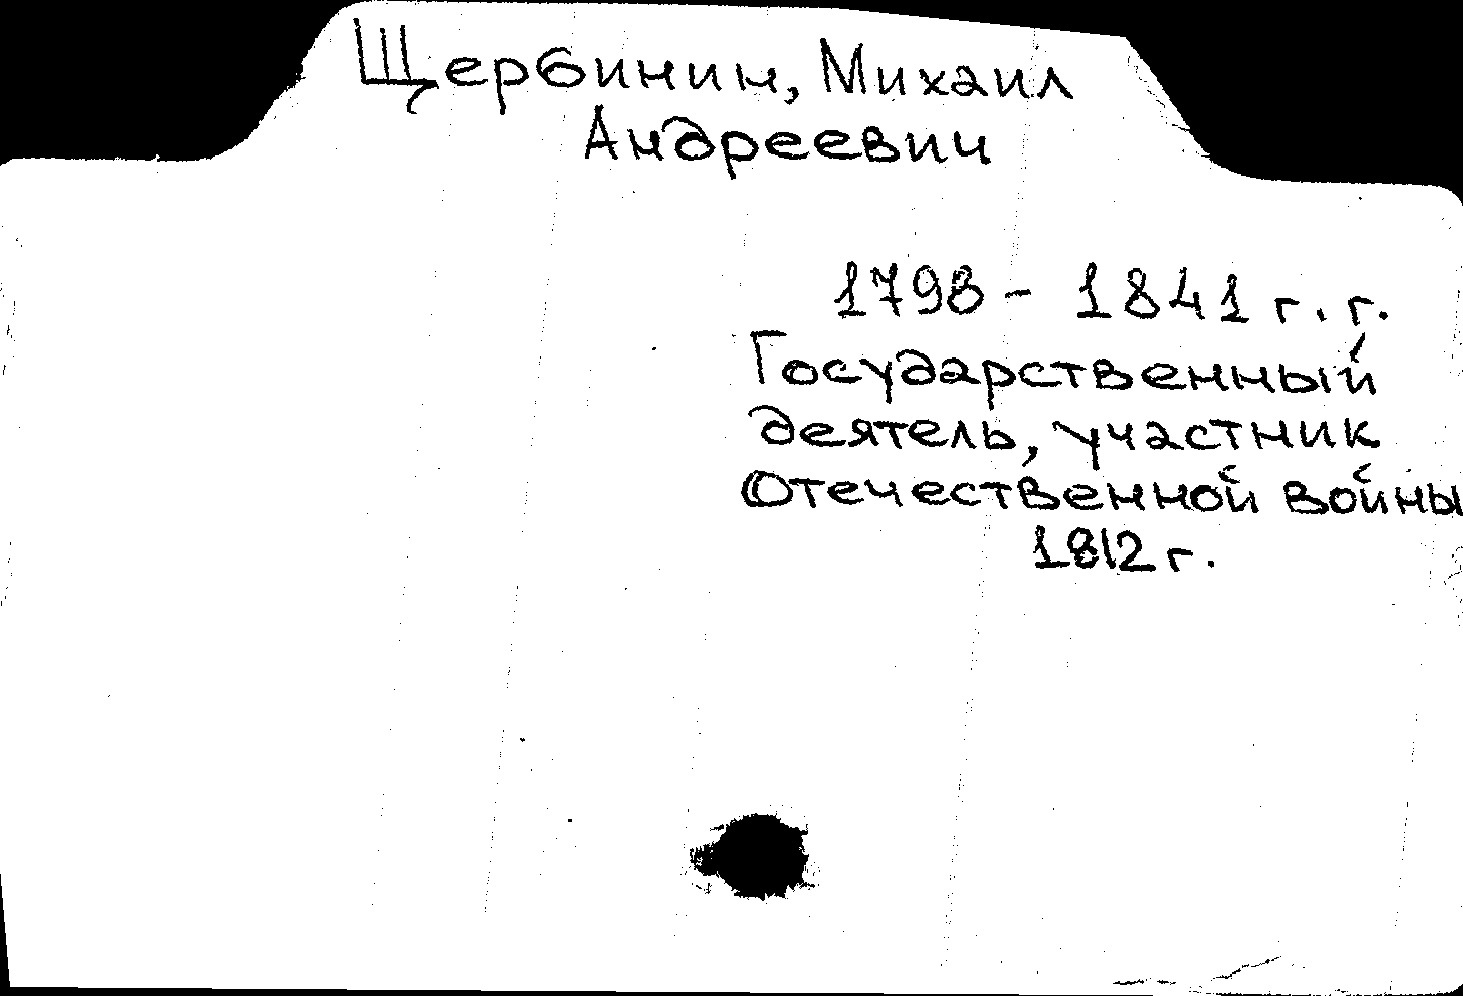 Щербинин, Михаил
Андреевич
1798 - 1841 г. г.
Государственный
деятель, участник
Отечественной войны
1812 г.